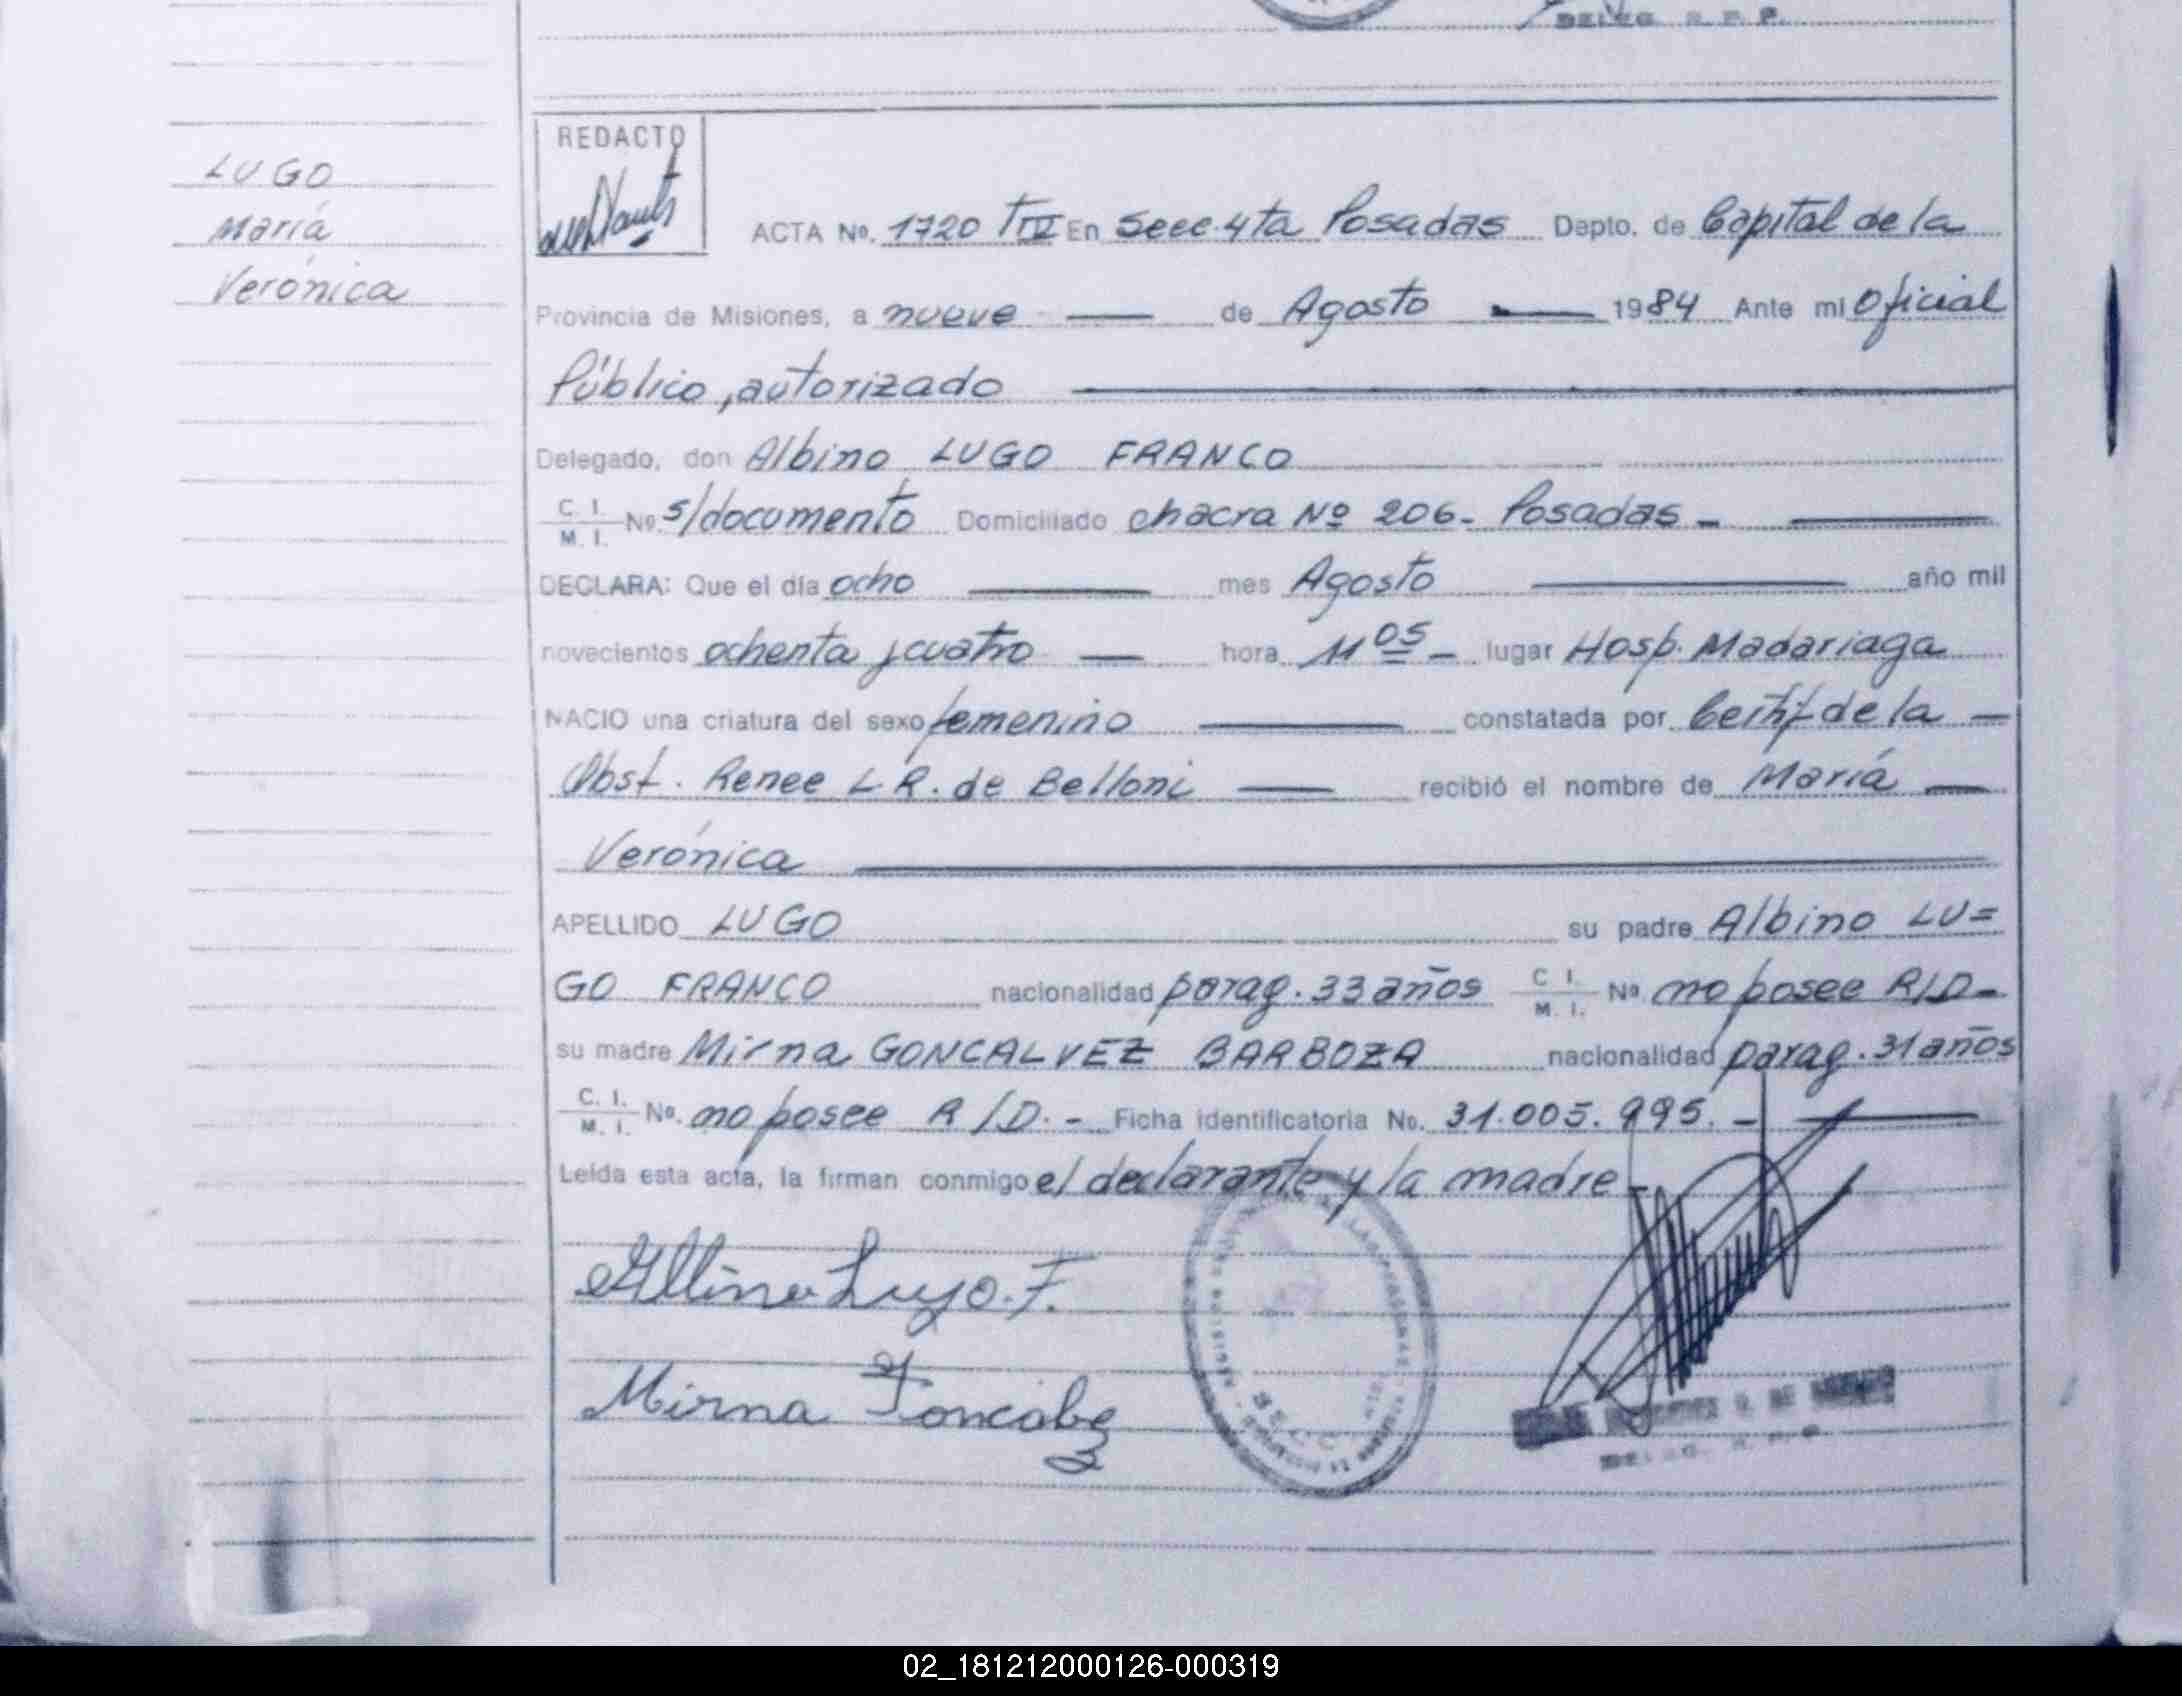 DELEG. R. P. P.
REDACTO
LUGO
María
Verónica
ACTA No. 1720 TIV En Secc. 4ta Posadas Depto. de Capital de la
Provincia de Misiones, a nueve — de Agosto — 1984 Ante mi Oficial
Público, autorizado —
Delegado, don Albino LUGO FRANCO
C. I. / M. I. No. s/documento Domiciliado chacra Nº 206.- Posadas - —
DECLARA: Que el día ocho — mes Agosto — año mil
novecientos ochenta y cuatro — hora 11 05 - lugar Hosp. Madariaga
NACIO una criatura del sexo femenino — constatada por Certif de la —
Obst. Renee L. R. de Belloni — recibió el nombre de María —
Verónica —
APELLIDO LUGO su padre Albino LU=
GO FRANCO nacionalidad parag. 33 años C. I. / M. I. No. no posee R/D-
su madre Mirna GONCALVEZ BARBOZA nacionalidad parag. 31 años
C. I. / M. I. No. no posee R/D. - Ficha identificatoria No. 31.005.995. - —
Leída esta acta, la firman conmigo el declarante y la madre -
Albino Lugo. F.
Mirna
DELEG. R. P. P.
02_181212000126-000319